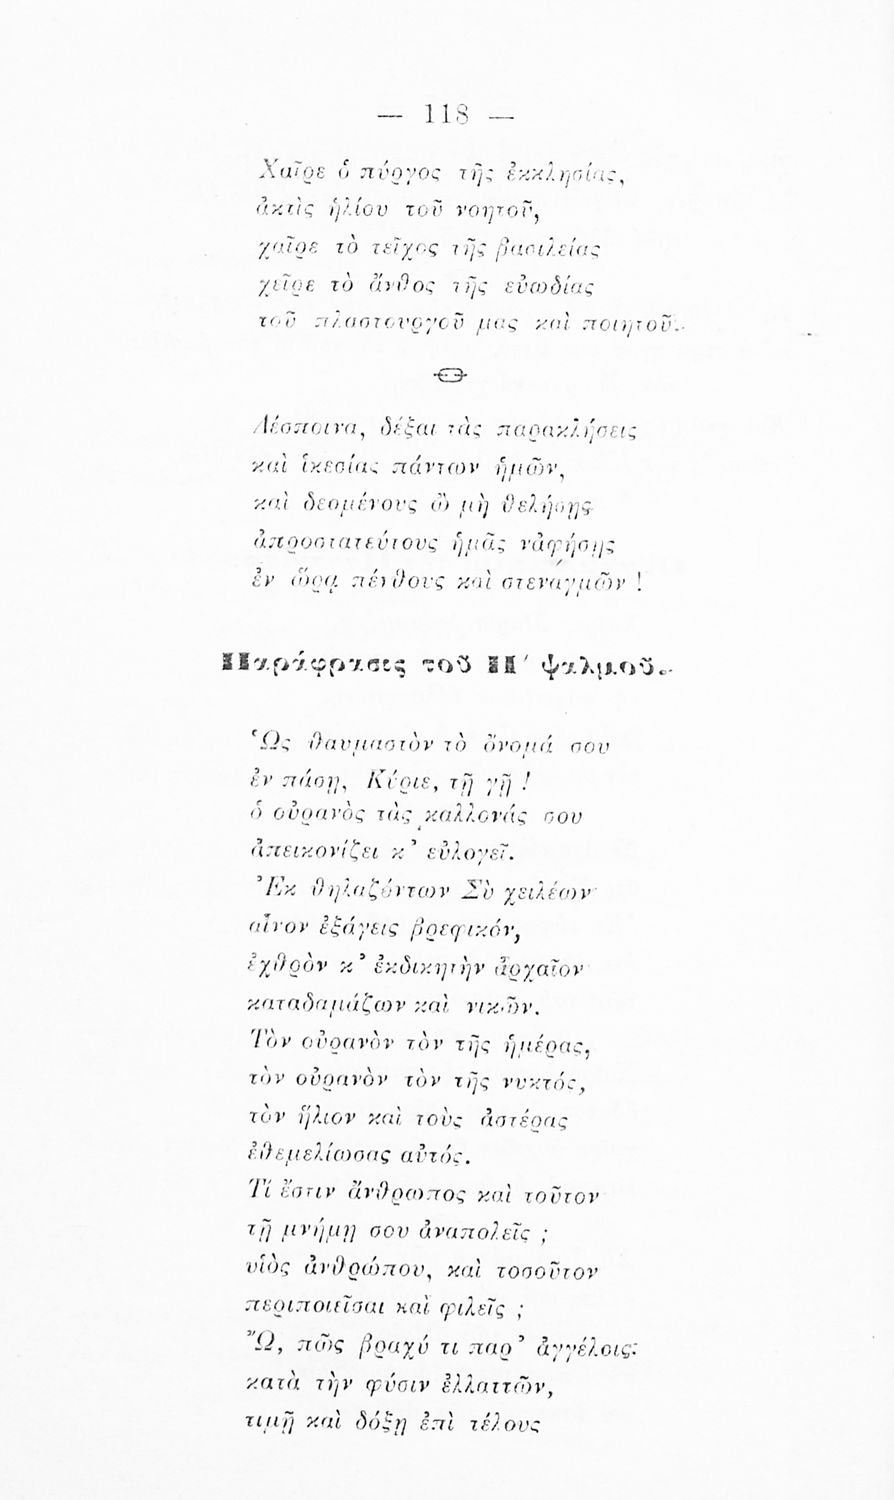 — 118 —
Χαῖρε ὁ πύργος τῆς ἐκκλησίας,
ἀκτὶς ἡλίου τοῦ νοητοῦ,
χαῖρε τὸ τεῖχος τῆς βασιλείας
χεῖρε τὸ ἄνθος τῆς εὐωδίας
τοῦ πλαστουργοῦ μας καὶ ποιητοῦ.
Δέσποινα, δέξαι τὰς παρακλήσεις
καὶ ἱκεσίας πάντων ἡμῶν,
καὶ δεομένους ὢ μὴ θελήσῃς
ἀπροστατεύτους ἡμᾶς νἀφήσῃς
ἐν ὥρᾳ πένθους καὶ στεναγμῶν !
Παράφρασις τοῦ Η΄ ψαλμοῦ.
Ὡς θαυμαστὸν τὸ ὄνομά σου
ἐν πάσῃ, Κύριε, τῇ γῇ !
ὁ οὐρανὸς τὰς καλλονάς σου
ἀπεικονίζει κ᾽ εὐλογεῖ.
Ἐκ θηλαζόντων Σὺ χειλέων
αἶνον ἐξάγεις βρεφικόν,
ἐχθρὸν κ᾽ ἐκδικητὴν ἀρχαῖον
καταδαμάζων καὶ νικῶν.
Τὸν οὐρανὸν τὸν τῆς ἡμέρας,
τὸν οὐρανὸν τὸν τῆς νυκτός,
τὸν ἥλιον καὶ τοὺς ἀστέρας
ἐθεμελίωσας αὐτός.
Τί ἔστιν ἄνθρωπος καὶ τοῦτον
τῇ μνήμῃ σου ἀναπολεῖς ;
υἱὸς ἀνθρώπου, καὶ τοσοῦτον
περιποιεῖσαι καὶ φιλεῖς ;
Ὢ, πῶς βραχύ τι παρ᾽ ἀγγέλοις
κατὰ τὴν φύσιν ἐλλαττῶν,
τιμῇ καὶ δόξῃ ἐπὶ τέλους